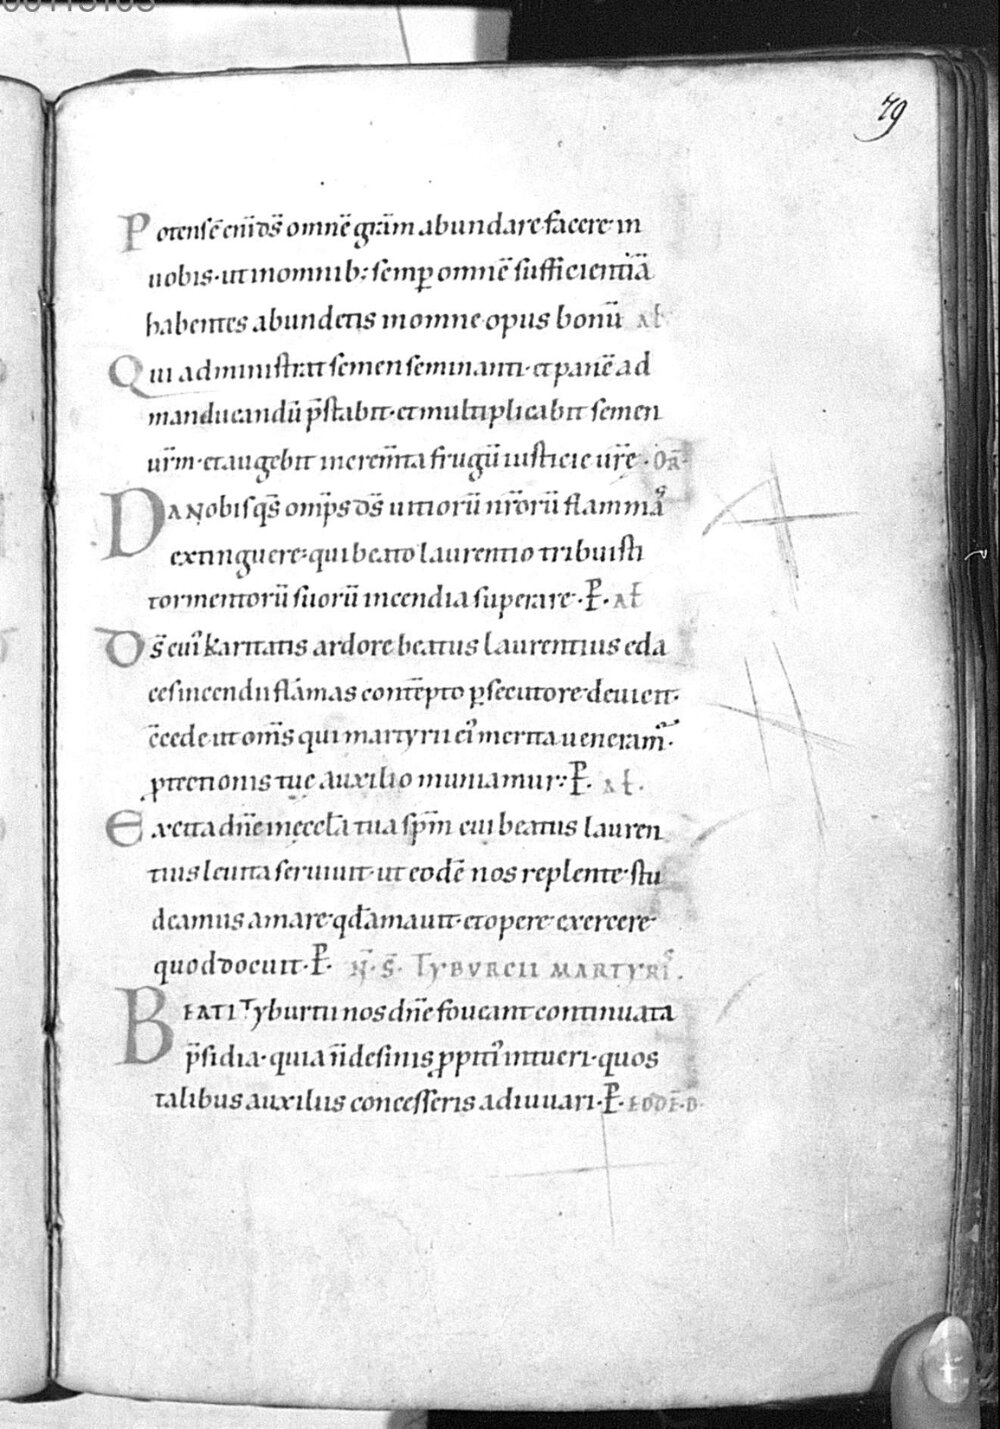 79
Potens ē eni᷒ ds̄ omnē grām abundare facere in
uobis· ut inomnib; semꝑ omnē sufficientiā
habentes abundetis inomne opus bonū
Qui administrat semen seminanti· et panē ad
manducandū p̄stabit· et multiplicabit semen
ur̄m· et augebit increm̄ta frugū iusticie ur̄ę· OR̄·
DA Nobis qs̄ omp̄s ds̄ uitiorū nr̄orū flammas
extinguere· qui beato laurentio tribuisti
tormentorū suorū incendia superare· P· AL̄
Ds̄ cui᷒ karitatis ardore beatus laurentius eda
ces incendii flāmas contēpto ꝑsecutore deuicit·
c̄cede ut om̄s qui martyrii ei᷒ merita ueneram᷒·
ꝓtectionis tuę auxilio muniamur· P· AL̄·
Excita dn̄e in ęccl̄a tua sp̄m cui beatus lauren
tius leuita seruiuit· ut eodē nos replente stu
deamus amare qd̄ amauit· et opere exercere
quod docuit· P· N̄· S̄· TYBURCII MARTYRI᷒·
BEATI Tyburtii nos dn̄e foueant continuata
p̄sidia· quia n̄ desinis ꝓpiti᷒ intueri· quos
talibus auxiliis concesseris adiuuari· P· EODĒ· D·